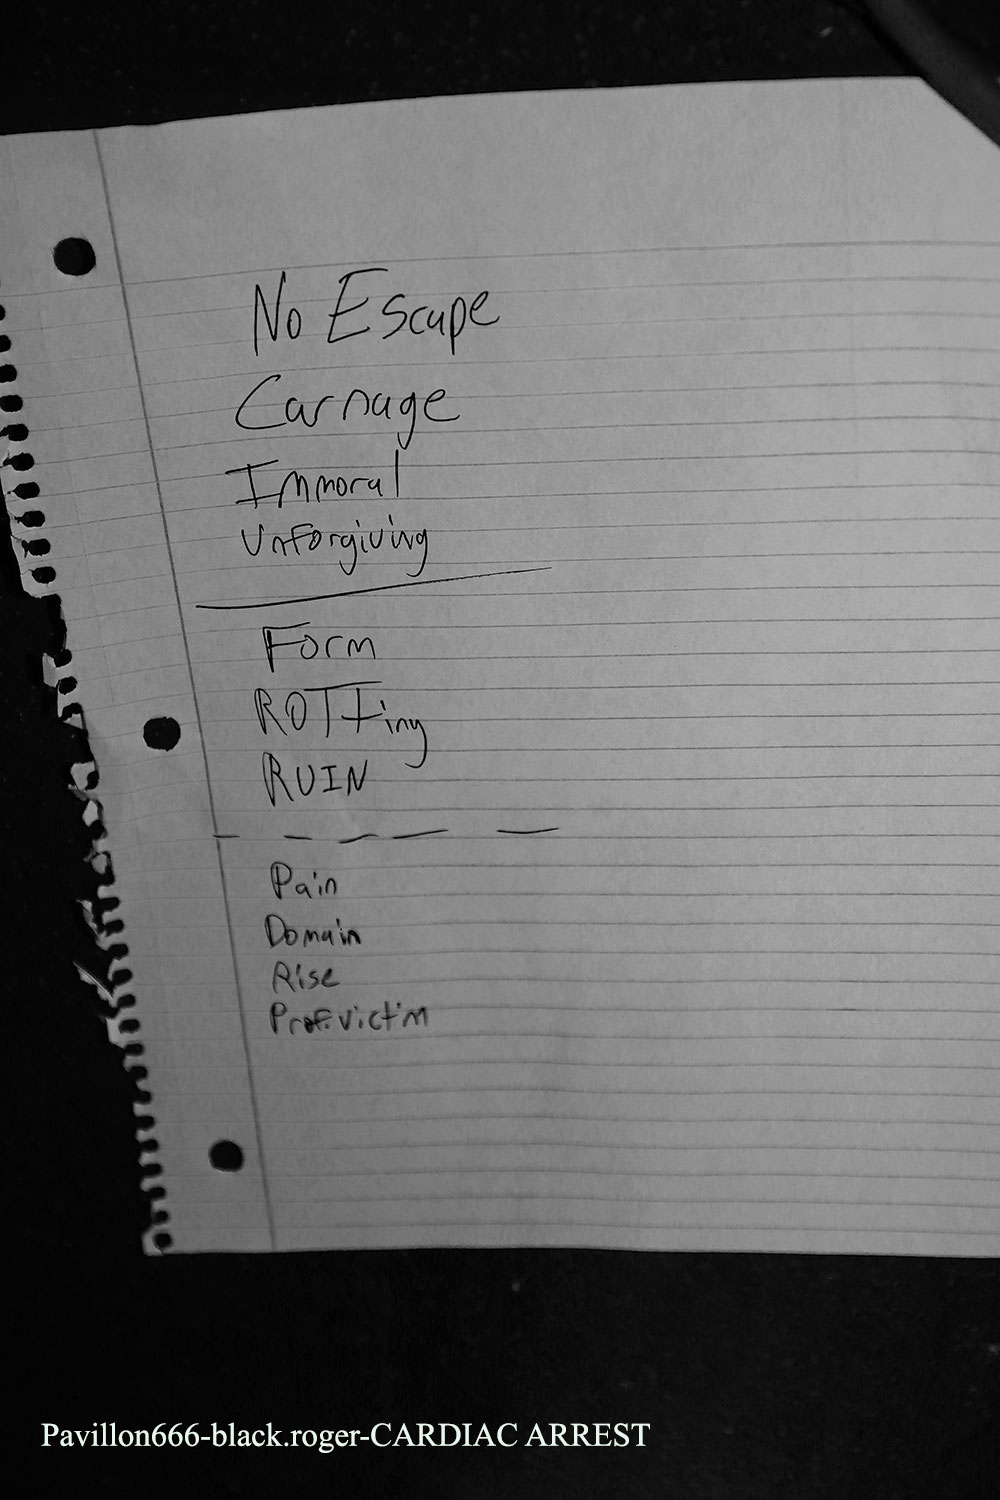 No Escape
Carnage
Immoral
Unforgiving
Form
ROTTing
RUIN
Pain
Domain
Rise
Prof.victim
Pavillon666-black.roger-CARDIAC ARREST